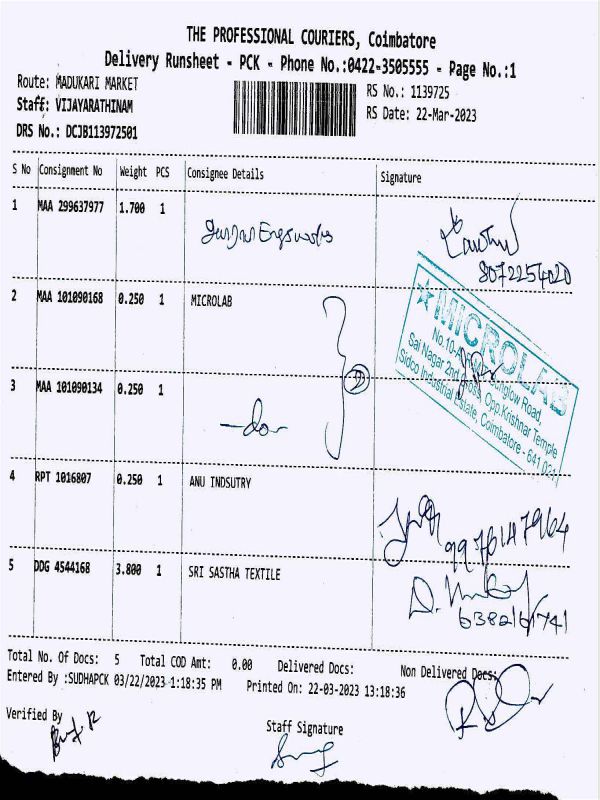 THE PROFESSIONAL COURIERS, Coimbatore
Delivery Runsheet - PCK - Phone No.:0422-3505555 - Page No.:1
Route: MADUKARI MARKET
RS No.: 1139725
Staff: VIJAYARATHINAM
RS Date: 22-Mar-2023
DRS No.: DCJB113972501
S No Consignment No Weight PCS Consignee Details Signature
1 MAA 299637977 1.700 1
8072254020
2 MAA 101090168 0.250 1 MICROLAB
2
MICROLAB
Sai Nagar 2nd Cross, Opp.Krishnar Temple
Sidco Industrial Estate, Coimbatore - 641 021
3 MAA 101090134 0.250 1
-do-
4 RPT 1016807 0.250 1 ANU INDSUTRY
9976147964
5 DDG 4544168 3.800 1 SRI SASTHA TEXTILE
6382161741
Total No. Of Docs: 5 Total COD Amt: 0.00 Delivered Docs: Non Delivered Docs:
Entered By :SUDHAPCK 03/22/2023 1:18:35 PM Printed On: 22-03-2023 13:18:36
Verified By
Staff Signature